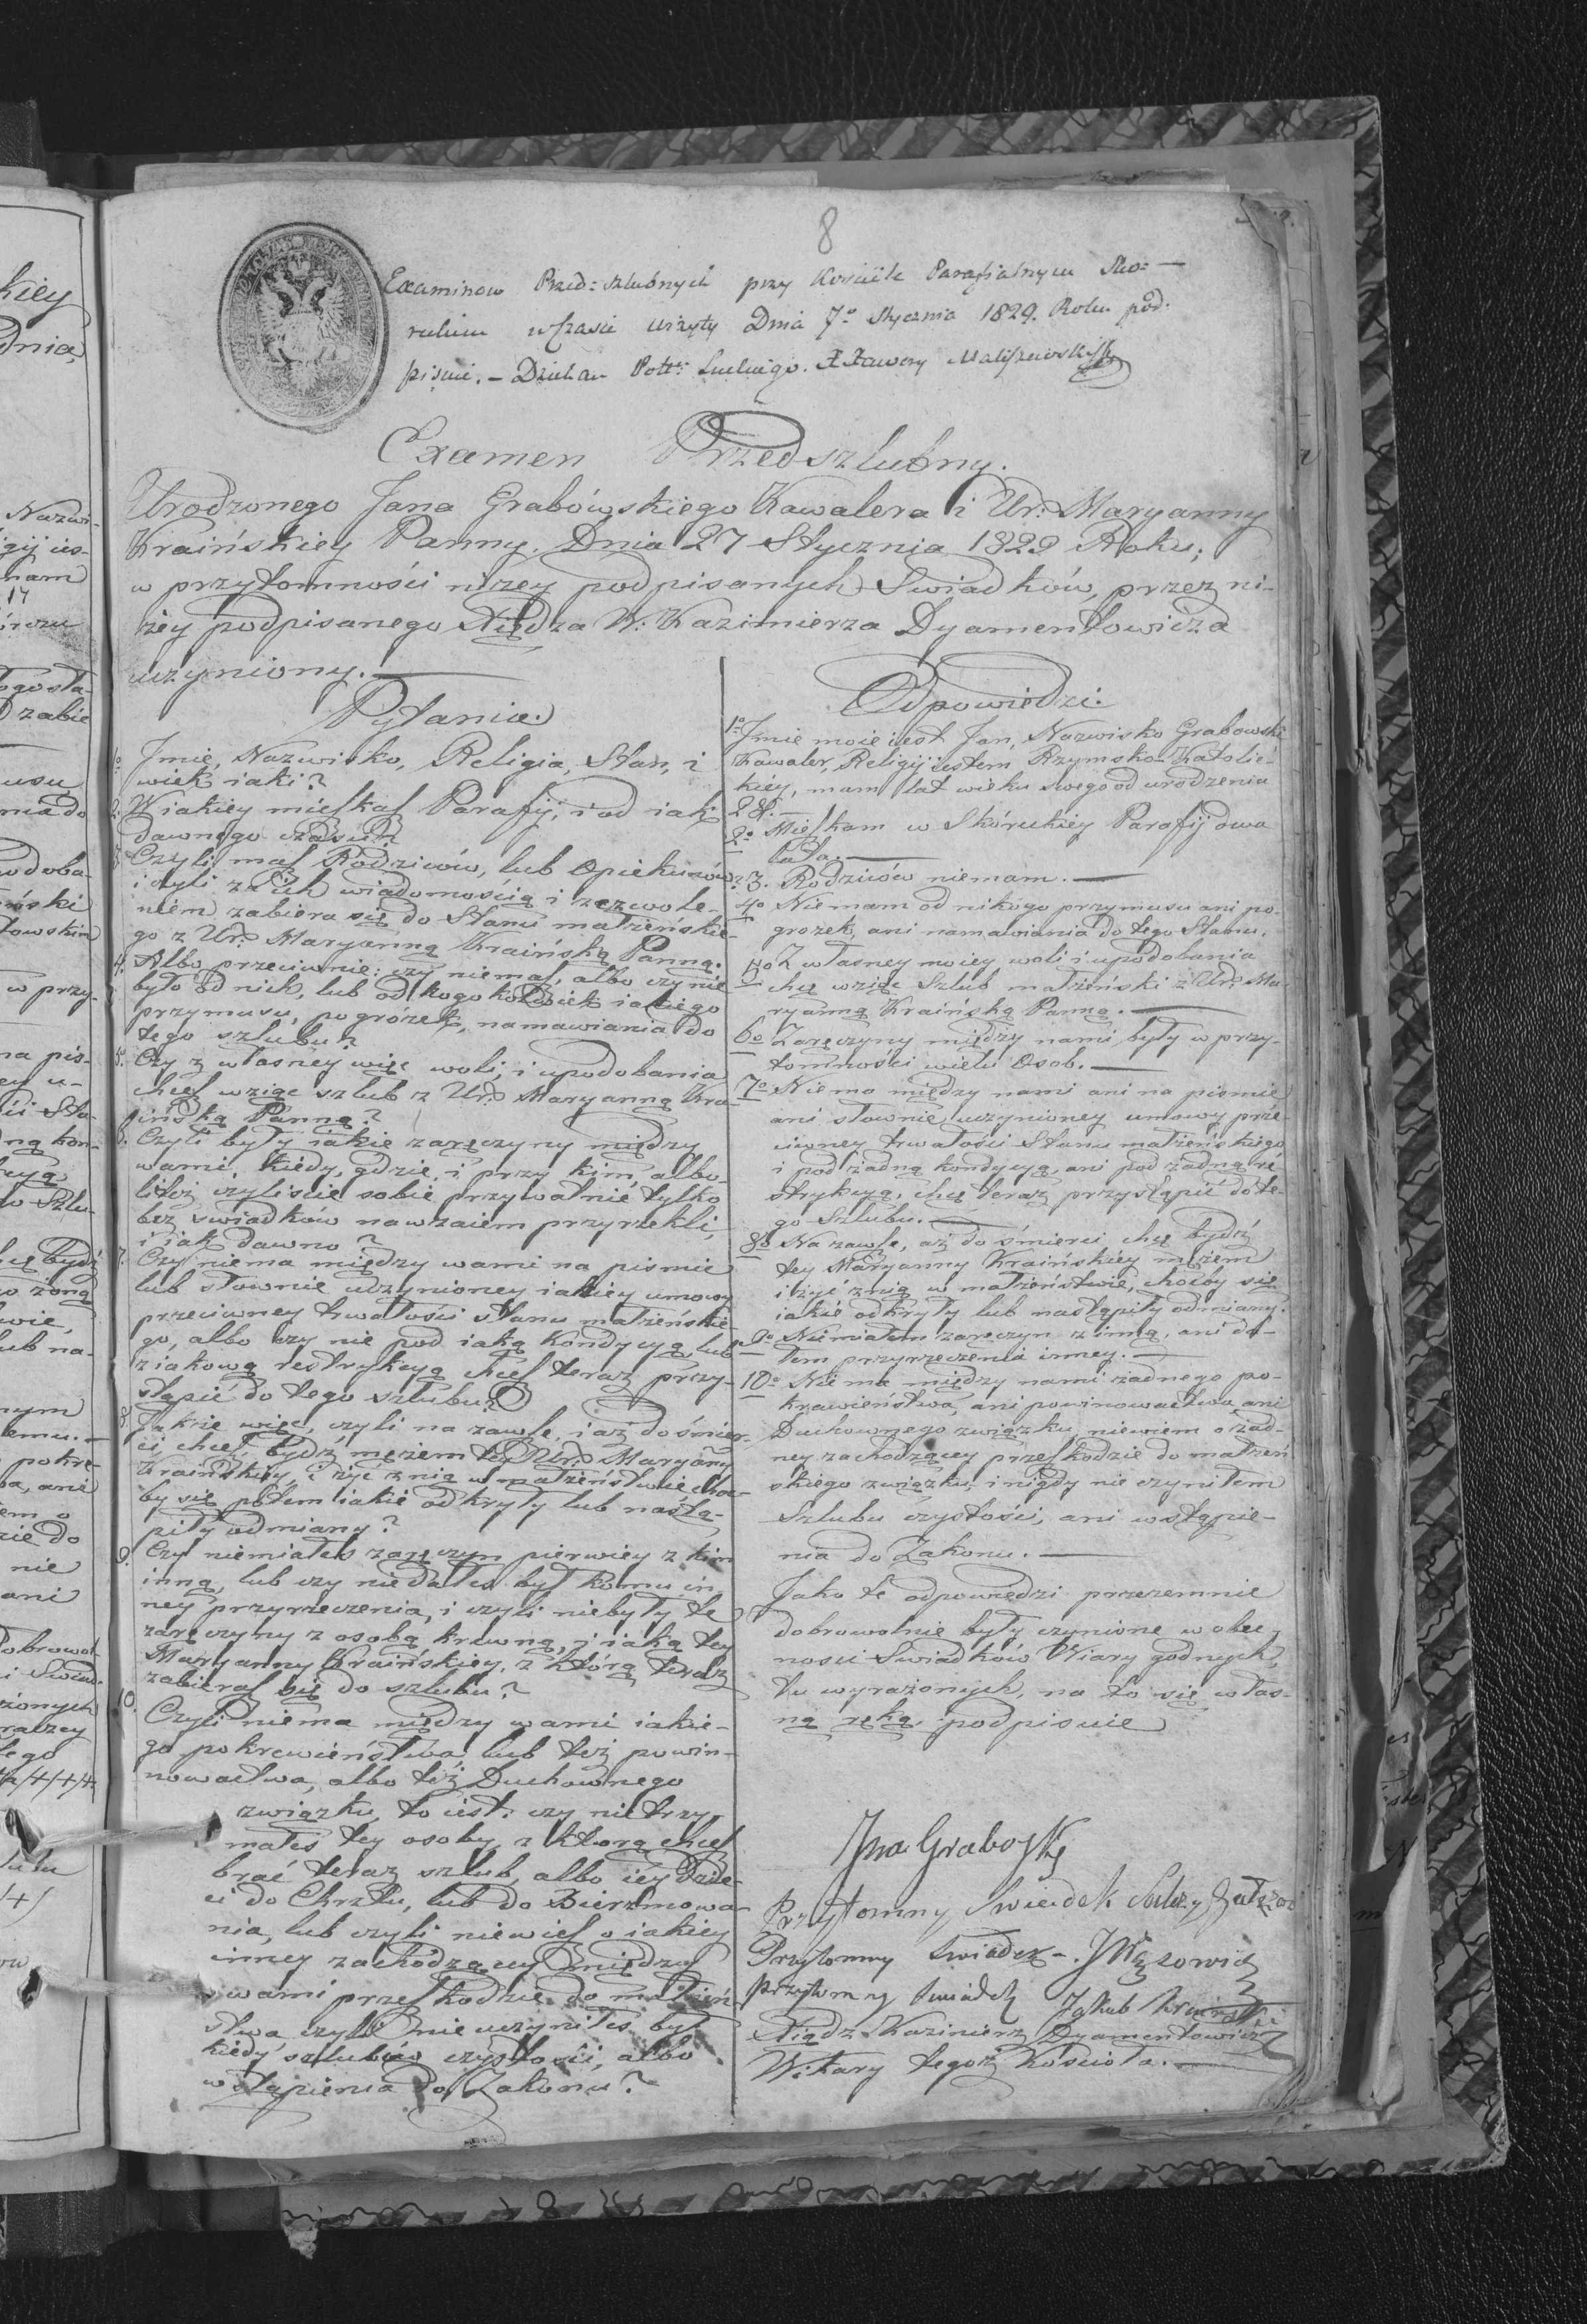 8
Examinow Przed: szlubnych przy Kościele Parafialnym Sko=
ruckim w Czasie wizyty Dnia 7º Stycznia 1829. Roku pod:
pisuie. – Dziekan Xawery Maliszewski
Examen Przedszlubny.
Urodzonego Jana Grabówskiego Kawalera i Ur: Maryanny
Kraińskiey Panny. Dnia 27 Stycznia 1829 Roku,
w przytomności niżey podpisanych Swiadków, przez ni-
żey podpisanego Xiędza W: Kazimierza Dyamentowicza
uczyniony.
Pytania.
1º Jmie, Nazwisko, Religia, Stan, i
wiek iaki?
2. W iakiey mieszkasz Parafij, i od iak
dawnego czasu?
3. Czyli masz Rodziców, lub Opiekunów?
i czyli za ich wiadomością i zezwole-
niem zabiera się do Stanu małżeńskie-
go z Ur: Maryanną Kraińską Panną.
4. Albo przeciwnie: czy niemasz, albo czy nie
było od nich, lub od kogo kolwiek iakiego
przymusu, pogrózek, namawiania do
tego szlubu?
5. Czy z własney więc woli, i upodobania
chcesz wziąć szlub z Ur: Maryanną Kra-
ińską Panną?
6. Czyli były iakie zaręczyny między
wami, kiedy, gdzie, i przy kim, albo-
liteż czyliście sobie przywatnie tylko
bez swiadków nawzaiem przyrzekli,
i iak dawno?
7. Czy niema między wami na pismie
lub słownie uczynioney iakiey umowy
przeciwney trwałości stanu małżeńskie-
go, albo czy nie pod iaką Kondycyą, lub
z iakową restrykcyą chcesz teraz przy-
stąpić do tego szlubu?
8. Także więc, czyli na zawsze, i aż do śmier-
ci, chcesz bydź mężem tey Ur: Maryanny
Kraińskiey, i żyć z nią w małżeństwie choc-
by się potem iakie odkryły lub nastą-
piły odmiany?
9. Czy niemiałeś zaręczyn pierwiey z kim
inną, lub czy niedałeś byt komu in
ney przyrzeczenia, i czyli niebyły te
zaręczyny z osobą krewną, iaką tey
Maryanny Kraińskiey, z którą teraz
zabierasz się do szlubu?
10. Czyli niema między wami iakie-
go pokrewieństwa lub też powin-
nowactwa, albo też Duchownego
związku, to iest: czy nie trzy-
małeś tey osoby, z ktorą chcesz
brać teraz szlub, albo iéy Dzie-
ci do Chrztu, lub do Bierzmowa-
nia, lub czyli niewiesz o iakiey
inney zachodzącey między
wami przeszkodzie do małżeń
stwa czyli nie uczyniłes był
kiedy szlubów czystości, albo
wstąpienia do Zakonu?
Odpowiedzi.
1º Jmie moie iest Jan, Nazwisko Grabowski
Kawaler, Religij iestem Rzymsko-Katolic-
kiéy, mam lat wieku swego od urodzenia
28.
2º Mieszkam w Skóruckiey Parafij dwa
lata.
3. Rodziców niemam.
4º Niemam od nikogo przymusu ani po-
grozek, ani namawiania do tego Stanu.
5º Z własney moiey woli i upodobania
chcę wziąć Szlub małżeński z Ur: Ma-
ryanną Kraińską Panną.
6º Zaręczyny między nami były w przy-
tomności wielu Osob.
7º Niema między nami ani na pismie
ani słownie uczynioney umowy prze-
ciwney trwałości Stanu małżeńskiego
i pod żadną kondycyą, ani pod żadną re
strykcyą, chcę teraz przystąpić do te-
go Szlubu.
8º Na zawsze, aż do śmierci chcę bydź
tey Maryanny Kraińskiey mężem
i żyć z nią w małżeństwie, choćby się
iakie odkryły lub nastąpiły odmiany.
9º Niemiałem zaręczyn z inną, ani da-
łem przyrzeczenia inney.
10º Niema między nami żadnego po-
krewieństwa, ani powinowactwa, ani
Duchownego związku, niewiem o żad-
ney zachodzącey przeszkodzie do małżeń
skiego związku, i nigdy nie czyniłem
Szlubu czystości, ani wstąpie-
nia do Zakonu.
Jako te odpowiedzi przezemnie
dobrowolnie były czynione w obec
ności Swiadków Wiary godnych,
tu wyrażonych, na to się włas-
ną ręką podpisuie
Jna Grabosky
Przytomny Swiadek
Przytomny Swiadek –
Przytomny Swiadek Jakub Kraiński
Xiądz Kazimierz Dyamentowicz
Wikary tegoż Kościoła.